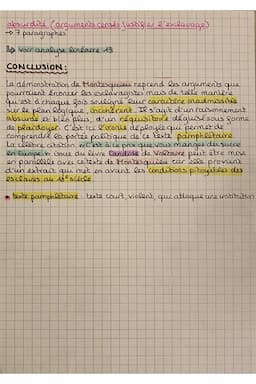 absurdité (arguments censés justifier l'esclavage)
→ 7 paragraphes
↳ voir analyse linéaire 13
CONCLUSION :
La démonstration de Montesquieu reprend les arguments que
pourraient énoncer les esclavagistes mais de telle manière
qu'est à chaque fois souligné leur caractère inadmissible
sur le plan logique, incohérent. Il s'agit d'un raisonnement
absurde et bien plus, d'un réquisitoire déguisé sous forme
de plaidoyer. C'est ici l'ironie déployée qui permet de
comprendre la portée politique de ce texte pamphlétaire.
La célèbre citation « C'est à ce prix que vous mangez du sucre
en Europe » issue du livre Candide de Voltaire peut être mise
en parallèle avec ce texte de Montesquieu car elle provient
d'un extrait qui met en avant les conditions pitoyables des
esclaves au 18e siècle.
* texte pamphlétaire : texte court, violent, qui attaque une institution